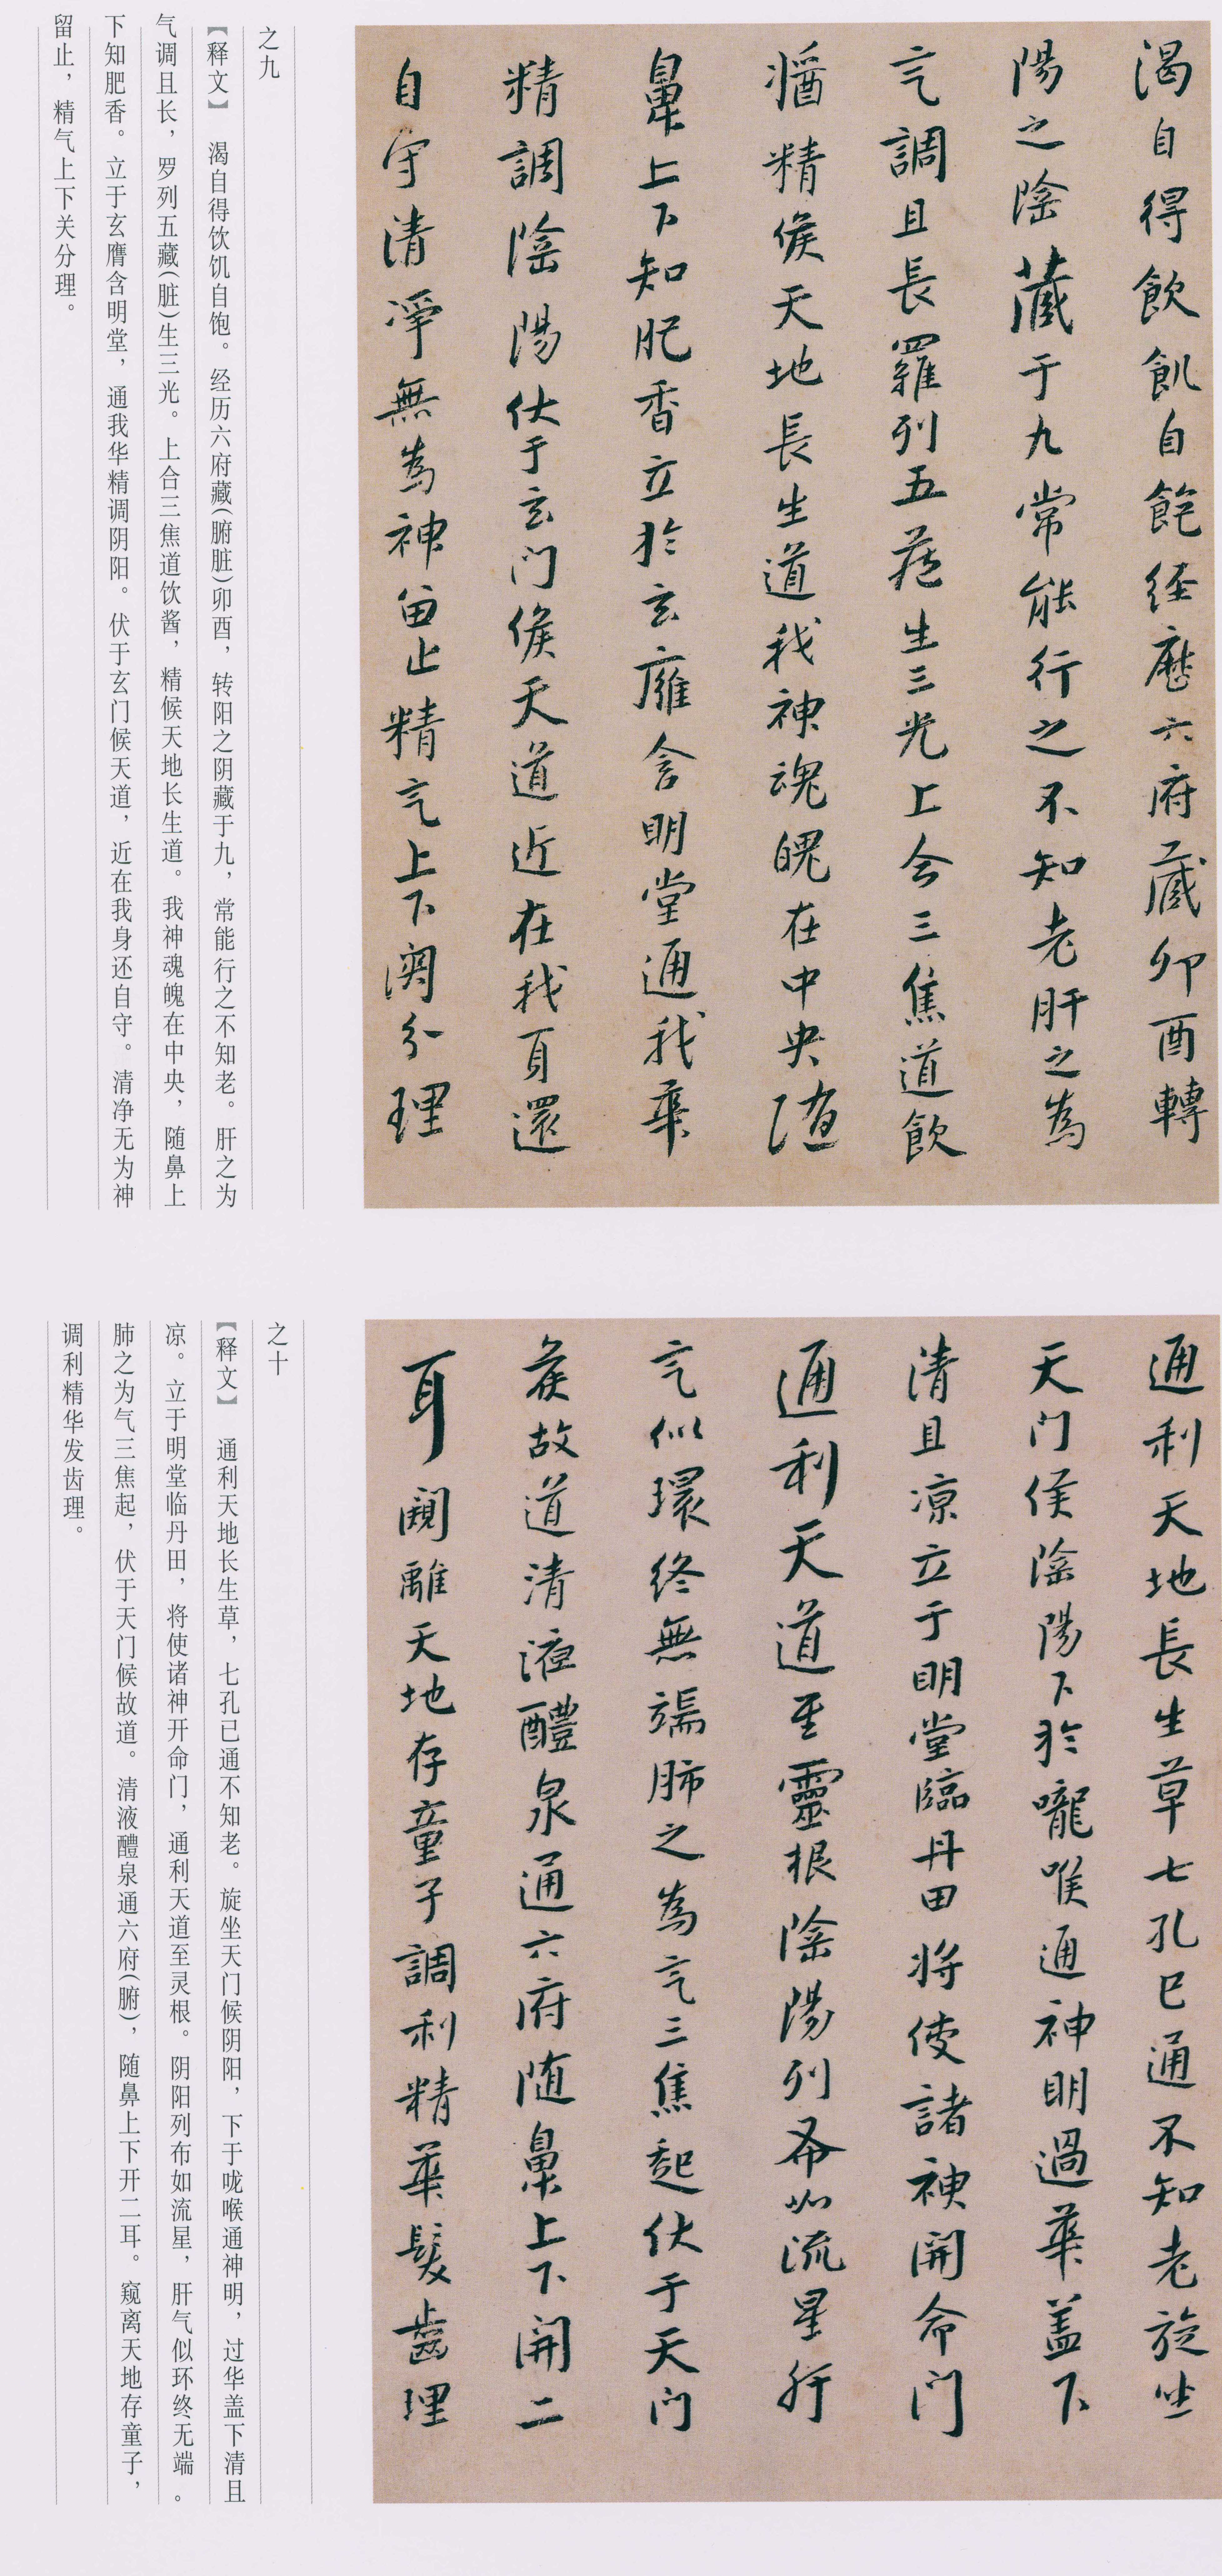 渴自得飲飢自飽經歷六府藏卯酉轉
陽之陰藏于九常能行之不知老肝之為
氣調且長羅列五藏生三光上合三焦道飲
漿精候天地長生道我神魂魄在中央随
鼻上下知肥香立於玄膺含明堂通我華
精調陰陽伏于玄門候天道近在我身還
自守清淨無為神留止精氣上下関分理
之九
【释文】 渴自得饮饥自饱。经历六府藏(腑脏)卯酉，转阳之阴藏于九，常能行之不知老。肝之为
气调且长，罗列五藏(脏)生三光。上合三焦道饮酱，精候天地长生道。我神魂魄在中央，随鼻上
下知肥香。立于玄膺含明堂，通我华精调阴阳。伏于玄门候天道，近在我身还自守。清净无为神
留止，精气上下关分理。
通利天地長生草七孔已通不知老旋坐
天門候陰陽下於嚨喉通神明過華盖下
清且凉立于明堂臨丹田将使諸神開命門
通利天道至靈根陰陽列布如流星肝
氣似環終無端肺之為氣三焦起伏于天門
候故道清液醴泉通六府随鼻上下開二
耳闚離天地存童子調利精華髮齒理
之十
【释文】 通利天地长生草，七孔已通不知老。旋坐天门候阴阳，下于咙喉通神明，过华盖下清且
凉。立于明堂临丹田，将使诸神开命门，通利天道至灵根。阴阳列布如流星，肝气似环终无端。
肺之为气三焦起，伏于天门候故道。清液醴泉通六府(腑)，随鼻上下开二耳。窥离天地存童子，
调利精华发齿理。